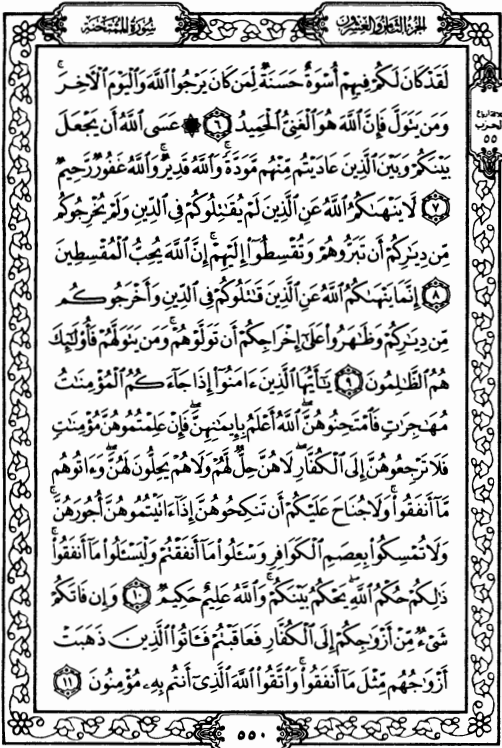 سُورَةُ المُمْتَحنَة
الجزء الثامن والعشرون
لَقَدْ كَانَ لَكُمْ فِيهِمْ أُسْوَةٌ حَسَنَةٌ لِّمَن كَانَ يَرْجُوا۟ ٱللَّهَ وَٱلْيَوْمَ ٱلْـَٔاخِرَ ۚ
وَمَن يَتَوَلَّ فَإِنَّ ٱللَّهَ هُوَ ٱلْغَنِىُّ ٱلْحَمِيدُ ٦ ۞ عَسَى ٱللَّهُ أَن يَجْعَلَ
بَيْنَكُمْ وَبَيْنَ ٱلَّذِينَ عَادَيْتُم مِّنْهُم مَّوَدَّةً ۚ وَٱللَّهُ قَدِيرٌ ۚ وَٱللَّهُ غَفُورٌ رَّحِيمٌ
٧ لَّا يَنْهَىٰكُمُ ٱللَّهُ عَنِ ٱلَّذِينَ لَمْ يُقَٰتِلُوكُمْ فِى ٱلدِّينِ وَلَمْ يُخْرِجُوكُم
مِّن دِيَٰرِكُمْ أَن تَبَرُّوهُمْ وَتُقْسِطُوٓا۟ إِلَيْهِمْ ۚ إِنَّ ٱللَّهَ يُحِبُّ ٱلْمُقْسِطِينَ
٨ إِنَّمَا يَنْهَىٰكُمُ ٱللَّهُ عَنِ ٱلَّذِينَ قَٰتَلُوكُمْ فِى ٱلدِّينِ وَأَخْرَجُوكُم
مِّن دِيَٰرِكُمْ وَظَٰهَرُوا۟ عَلَىٰٓ إِخْرَاجِكُمْ أَن تَوَلَّوْهُمْ ۚ وَمَن يَتَوَلَّهُمْ فَأُو۟لَٰٓئِكَ
هُمُ ٱلظَّٰلِمُونَ ٩ يَٰٓأَيُّهَا ٱلَّذِينَ ءَامَنُوٓا۟ إِذَا جَآءَكُمُ ٱلْمُؤْمِنَٰتُ
مُهَٰجِرَٰتٍ فَٱمْتَحِنُوهُنَّ ۖ ٱللَّهُ أَعْلَمُ بِإِيمَٰنِهِنَّ ۖ فَإِنْ عَلِمْتُمُوهُنَّ مُؤْمِنَٰتٍ
فَلَا تَرْجِعُوهُنَّ إِلَى ٱلْكُفَّارِ ۖ لَا هُنَّ حِلٌّ لَّهُمْ وَلَا هُمْ يَحِلُّونَ لَهُنَّ ۖ وَءَاتُوهُم
مَّآ أَنفَقُوا۟ ۚ وَلَا جُنَاحَ عَلَيْكُمْ أَن تَنكِحُوهُنَّ إِذَآ ءَاتَيْتُمُوهُنَّ أُجُورَهُنَّ ۚ
وَلَا تُمْسِكُوا۟ بِعِصَمِ ٱلْكَوَافِرِ وَسْـَٔلُوا۟ مَآ أَنفَقْتُمْ وَلْيَسْـَٔلُوا۟ مَآ أَنفَقُوا۟ ۚ
ذَٰلِكُمْ حُكْمُ ٱللَّهِ ۖ يَحْكُمُ بَيْنَكُمْ ۚ وَٱللَّهُ عَلِيمٌ حَكِيمٌ ١٠ وَإِن فَاتَكُمْ
شَىْءٌ مِّنْ أَزْوَٰجِكُمْ إِلَى ٱلْكُفَّارِ فَعَاقَبْتُمْ فَـَٔاتُوا۟ ٱلَّذِينَ ذَهَبَتْ
أَزْوَٰجُهُم مِّثْلَ مَآ أَنفَقُوا۟ ۚ وَٱتَّقُوا۟ ٱللَّهَ ٱلَّذِىٓ أَنتُم بِهِۦ مُؤْمِنُونَ ١١
الحزب
٥٥
٥٥٠